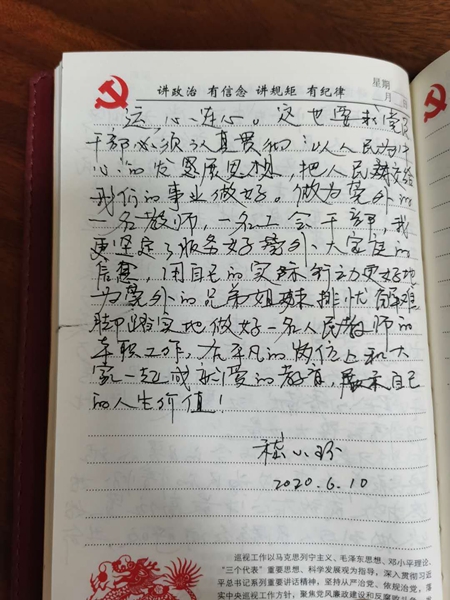 讲政治 有信念 讲规矩 有纪律
星期
月 日
运,心连心。这也要求党员
干部必须认真贯彻“以人民为中
心”的发展思想,把人民赋交给
我们的事业做好。做为党外的
一名教师,一名工会干部,我
更坚定了服务好党外大家庭的
信念,用自己的实际行动更好地
为党外的兄弟姐妹排忧解难
脚踏实地做好一名人民教师的
本职工作,在平凡的岗位上和大
家一起成就爱的教育,展示自己
的人生价值!
2020.6.10
巡视工作以马克思列宁主义、毛泽东思想、邓小平理论、
“三个代表”重要思想、科学发展观为指导,深入贯彻习近
平总书记系列重要讲话精神,坚持从严治党、依规治党,落
实中央巡视工作方针,聚焦党风廉政建设和反腐败斗争